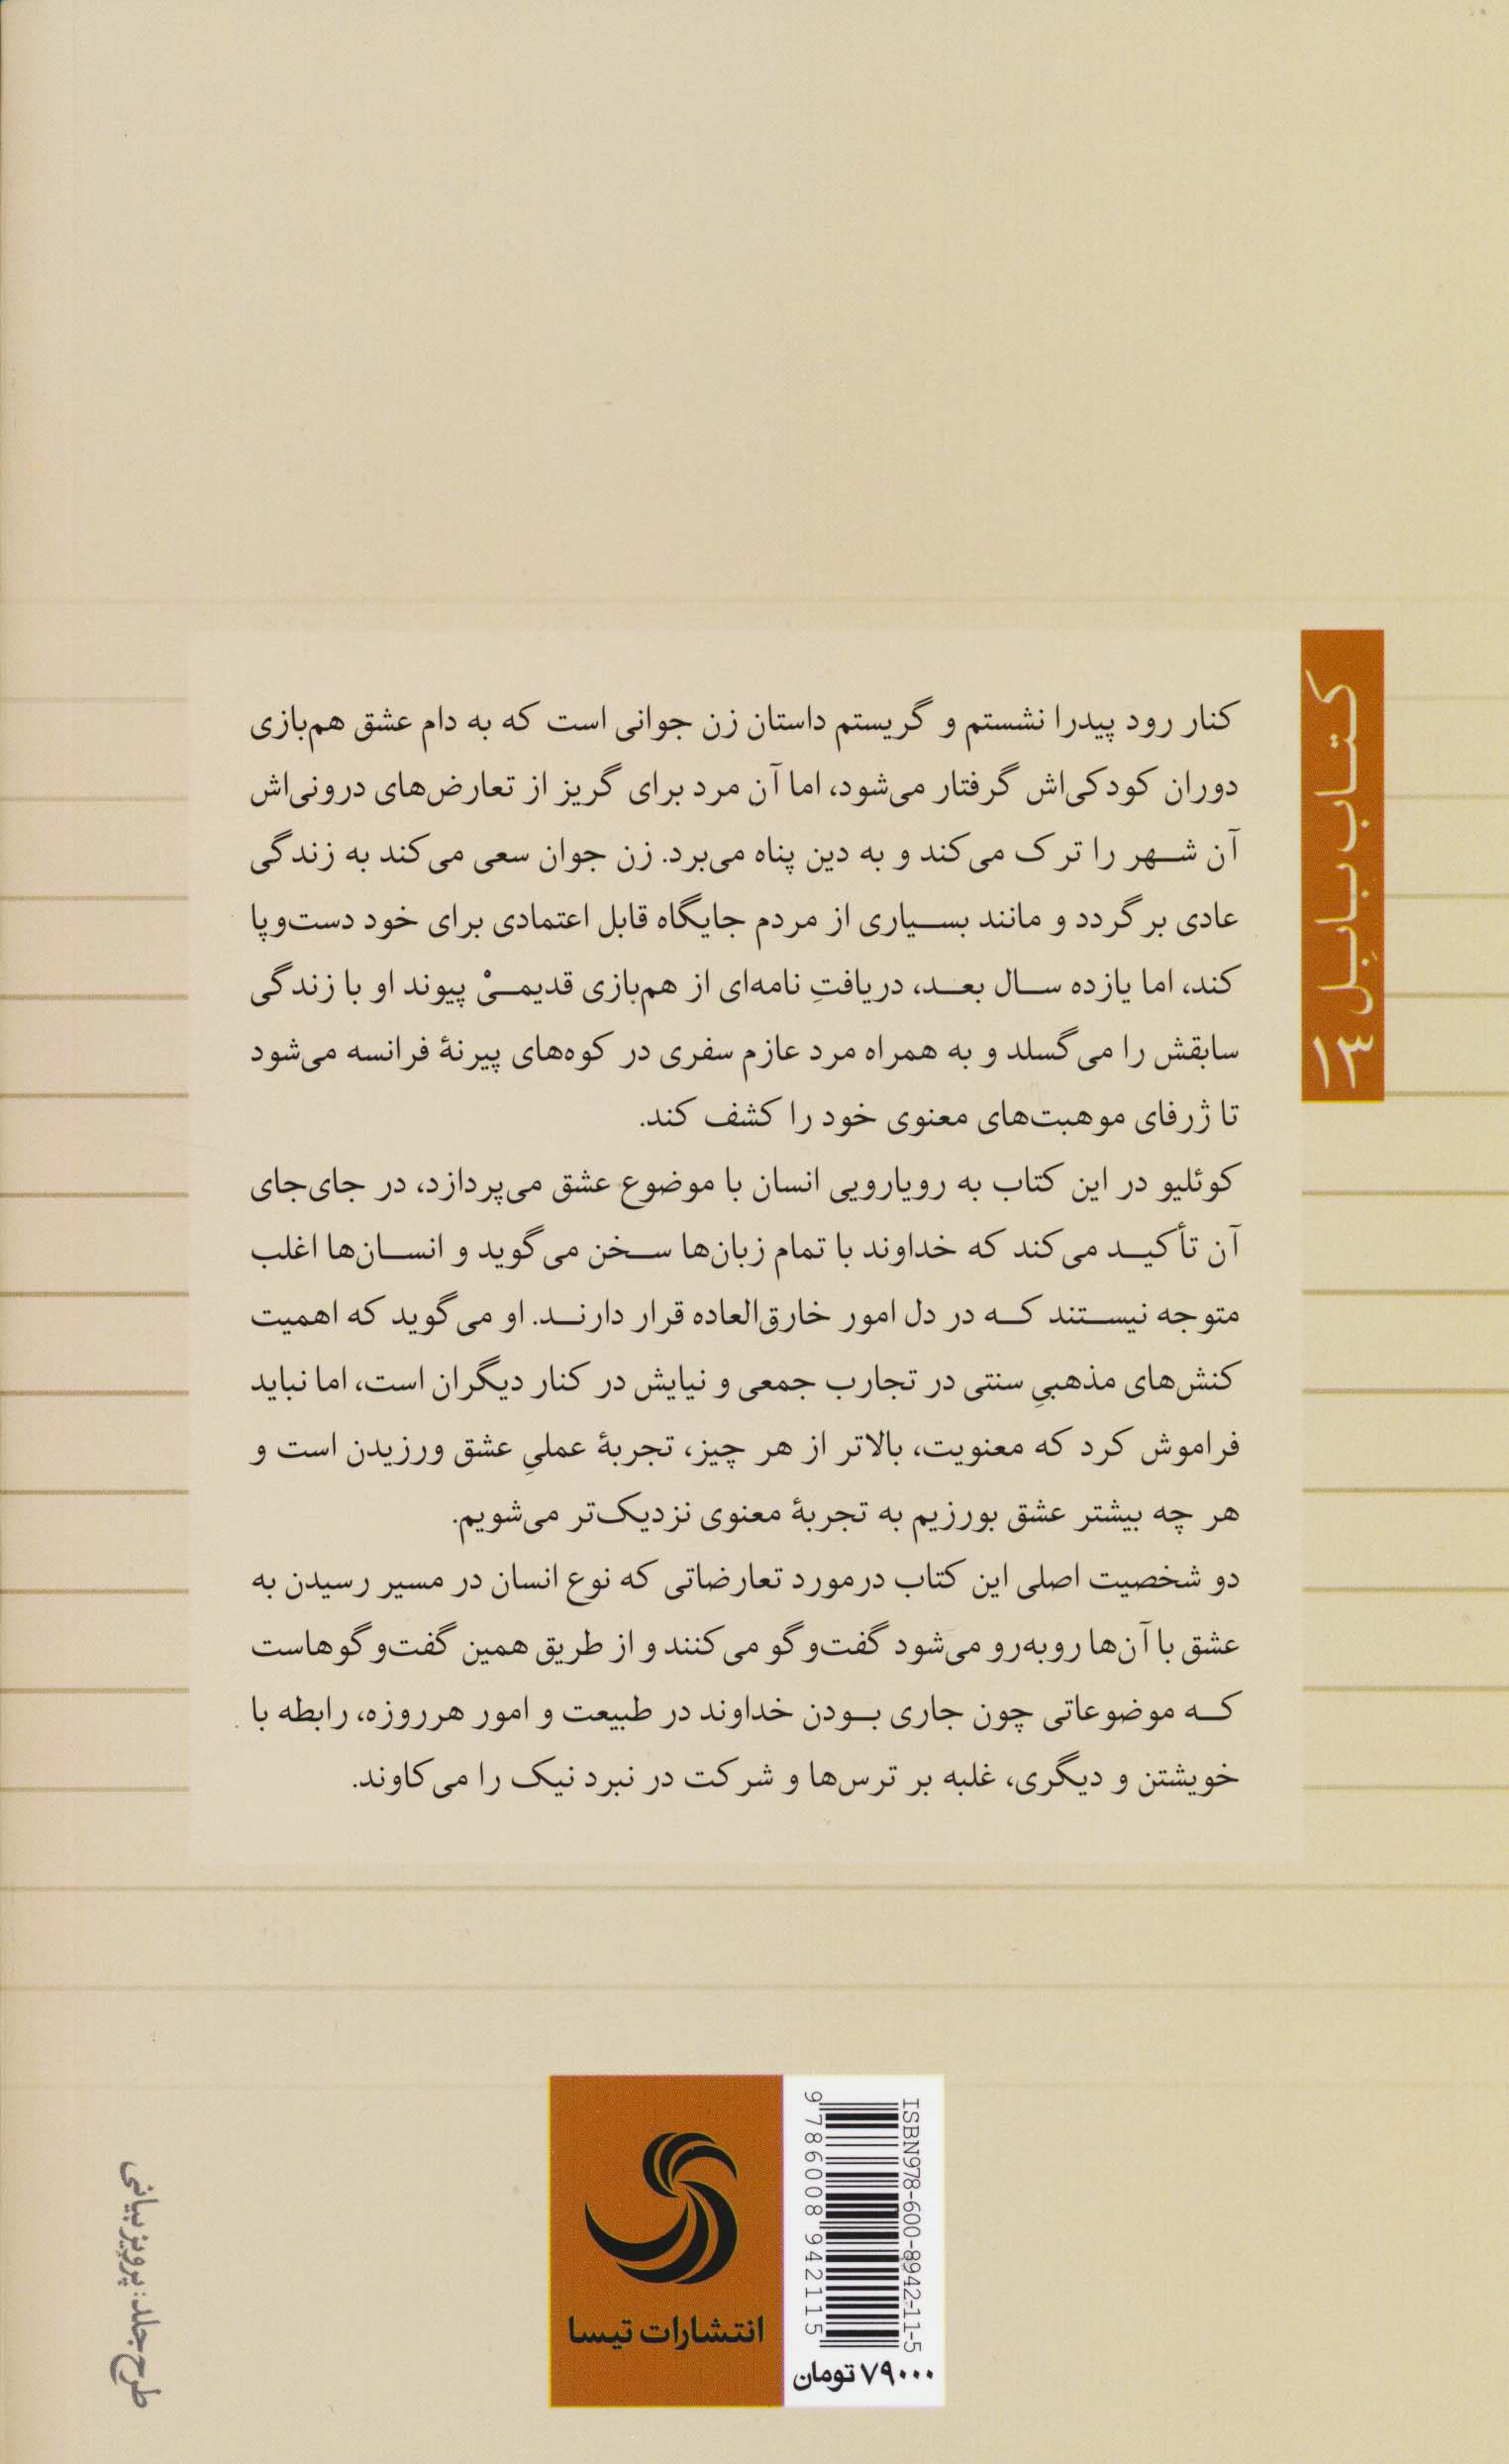 کتاب بابِل ۱۳
کنار رود پیدرا نشستم و گریستم داستان زن جوانی است که به دام عشق هم‌بازی
دوران کودکی‌اش گرفتار می‌شود، اما آن مرد برای گریز از تعارض‌های درونی‌اش
آن شهر را ترک می‌کند و به دین پناه می‌برد. زن جوان سعی می‌کند به زندگی
عادی برگردد و مانند بسیاری از مردم جایگاه قابل اعتمادی برای خود دست‌وپا
کند، اما یازده سال بعد، دریافتِ نامه‌ای از هم‌بازی قدیمیْ پیوند او با زندگی
سابقش را می‌گسلد و به همراه مرد عازم سفری در کوه‌های پیرنهٔ فرانسه می‌شود
تا ژرفای موهبت‌های معنوی خود را کشف کند.
کوئلیو در این کتاب به رویارویی انسان با موضوع عشق می‌پردازد، در جای‌جای
آن تأکید می‌کند که خداوند با تمام زبان‌ها سخن می‌گوید و انسان‌ها اغلب
متوجه نیستند که در دل امور خارق‌العاده قرار دارند. او می‌گوید که اهمیت
کنش‌های مذهبیِ سنتی در تجارب جمعی و نیایش در کنار دیگران است، اما نباید
فراموش کرد که معنویت، بالاتر از هر چیز، تجربهٔ عملیِ عشق ورزیدن است و
هر چه بیشتر عشق بورزیم به تجربهٔ معنوی نزدیک‌تر می‌شویم.
دو شخصیت اصلی این کتاب درمورد تعارضاتی که نوع انسان در مسیر رسیدن به
عشق با آن‌ها روبه‌رو می‌شود گفت‌وگو می‌کنند و از طریق همین گفت‌وگوهاست
که موضوعاتی چون جاری بودن خداوند در طبیعت و امور هرروزه، رابطه با
خویشتن و دیگری، غلبه بر ترس‌ها و شرکت در نبرد نیک را می‌کاوند.
ISBN978-600-8942-11-5
9 786008 942115
۷۹۰۰۰ تومان
انتشارات تیسا
طرح جلد: پرویز بیانی